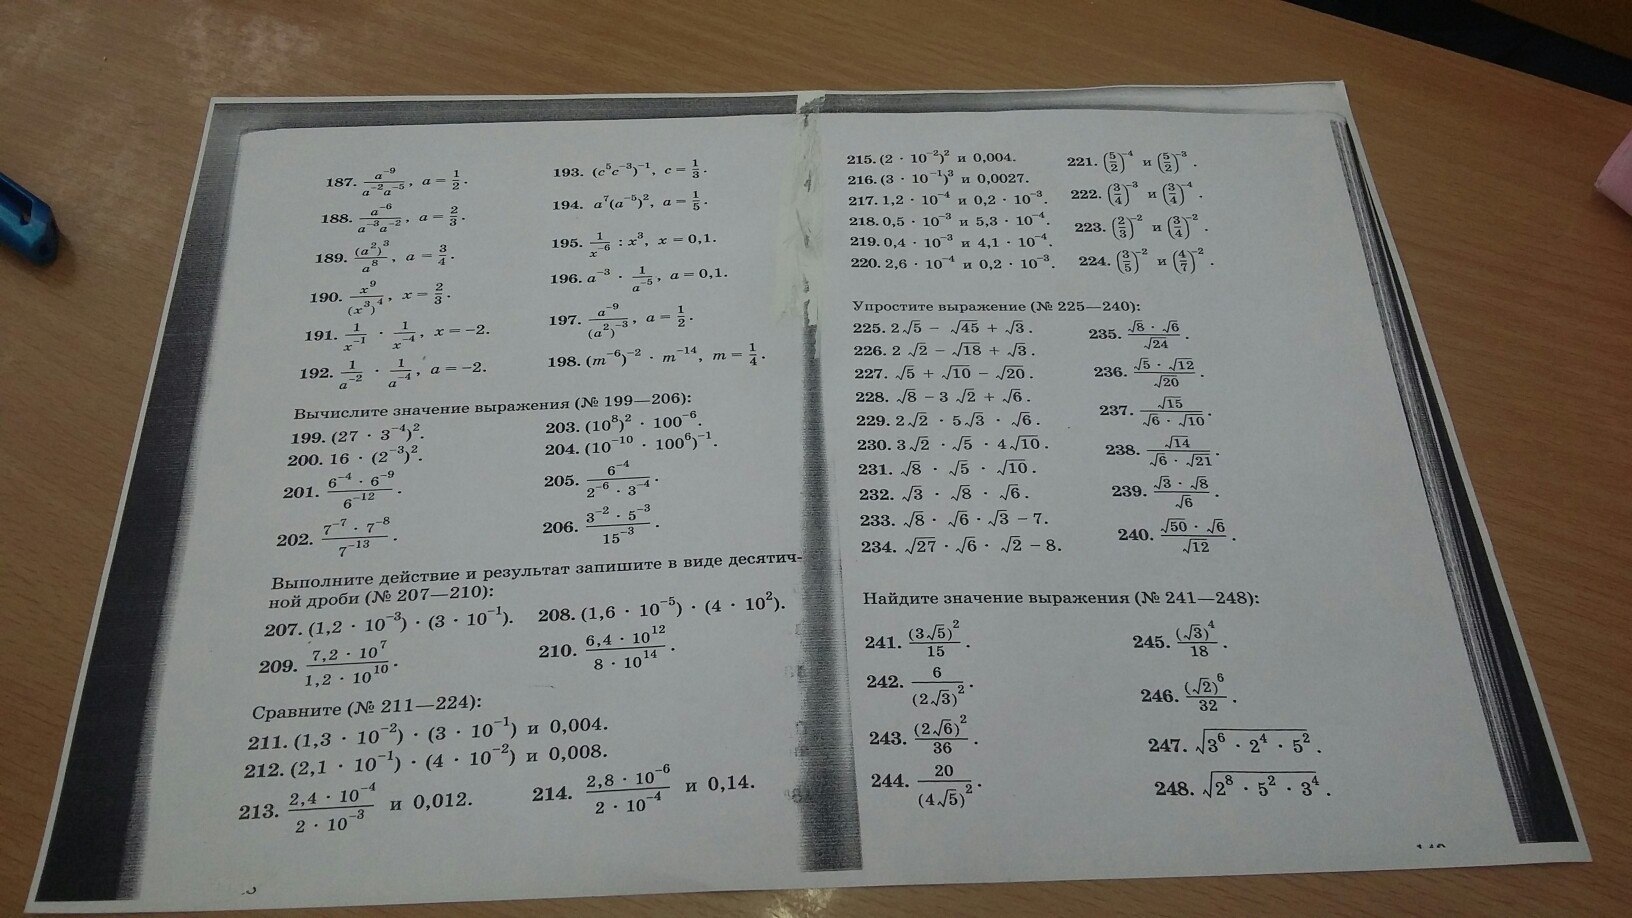 187. a⁻⁹/(a⁻²a⁻⁵), a = 1/2.
188. a⁻⁶/(a⁻³a⁻²), a = 2/3.
189. (a²)³/a⁸, a = 3/4.
190. x⁹/(x³)⁴, x = 2/3.
191. 1/x⁻¹ · 1/x⁻⁴, x = −2.
192. 1/a⁻² · 1/a⁻⁴, a = −2.
193. (c⁵c⁻³)⁻¹, c = 1/3.
194. a⁷(a⁻⁵)², a = 1/5.
195. 1/x⁻⁶ : x³, x = 0,1.
196. a⁻³ · 1/a⁻⁵, a = 0,1.
197. a⁻⁹/(a²)⁻³, a = 1/2.
198. (m⁻⁶)⁻² · m⁻¹⁴, m = 1/4.
Вычислите значение выражения (№ 199—206):
199. (27 · 3⁻⁴)².
200. 16 · (2⁻³)².
201. (6⁻⁴ · 6⁻⁹)/6⁻¹².
202. (7⁻⁷ · 7⁻⁸)/7⁻¹³.
203. (10⁸)² · 100⁻⁶.
204. (10⁻¹⁰ · 100⁶)⁻¹.
205. 6⁻⁴/(2⁻⁶ · 3⁻⁴).
206. (3⁻² · 5⁻³)/15⁻³.
Выполните действие и результат запишите в виде десятич-
ной дроби (№ 207—210):
207. (1,2 · 10⁻³) · (3 · 10⁻¹).
208. (1,6 · 10⁻⁵) · (4 · 10²).
209. (7,2 · 10⁷)/(1,2 · 10¹⁰).
210. (6,4 · 10¹²)/(8 · 10¹⁴).
Сравните (№ 211—224):
211. (1,3 · 10⁻²) · (3 · 10⁻¹) и 0,004.
212. (2,1 · 10⁻¹) · (4 · 10⁻²) и 0,008.
213. (2,4 · 10⁻⁴)/(2 · 10⁻³) и 0,012.
214. (2,8 · 10⁻⁶)/(2 · 10⁻⁴) и 0,14.
215. (2 · 10⁻²)² и 0,004.
216. (3 · 10⁻¹)³ и 0,0027.
217. 1,2 · 10⁻⁴ и 0,2 · 10⁻³.
218. 0,5 · 10⁻³ и 5,3 · 10⁻⁴.
219. 0,4 · 10⁻³ и 4,1 · 10⁻⁴.
220. 2,6 · 10⁻⁴ и 0,2 · 10⁻³.
221. (5/2)⁻⁴ и (5/2)⁻³.
222. (3/4)⁻³ и (3/4)⁻⁴.
223. (2/3)⁻² и (3/4)⁻².
224. (3/5)⁻² и (4/7)⁻².
Упростите выражение (№ 225—240):
225. 2√5 − √45 + √3.
226. 2√2 − √18 + √3.
227. √5 + √10 − √20.
228. √8 − 3√2 + √6.
229. 2√2 · 5√3 · √6.
230. 3√2 · √5 · 4√10.
231. √8 · √5 · √10.
232. √3 · √8 · √6.
233. √8 · √6 · √3 − 7.
234. √27 · √6 · √2 − 8.
235. (√8 · √6)/√24.
236. (√5 · √12)/√20.
237. √15/(√6 · √10).
238. √14/(√6 · √21).
239. (√3 · √8)/√6.
240. (√50 · √6)/√12.
Найдите значение выражения (№ 241—248):
241. (3√5)²/15.
242. 6/(2√3)².
243. (2√6)²/36.
244. 20/(4√5)².
245. (√3)⁴/18.
246. (√2)⁶/32.
247. √(3⁶ · 2⁴ · 5²).
248. √(2⁸ · 5² · 3⁴).